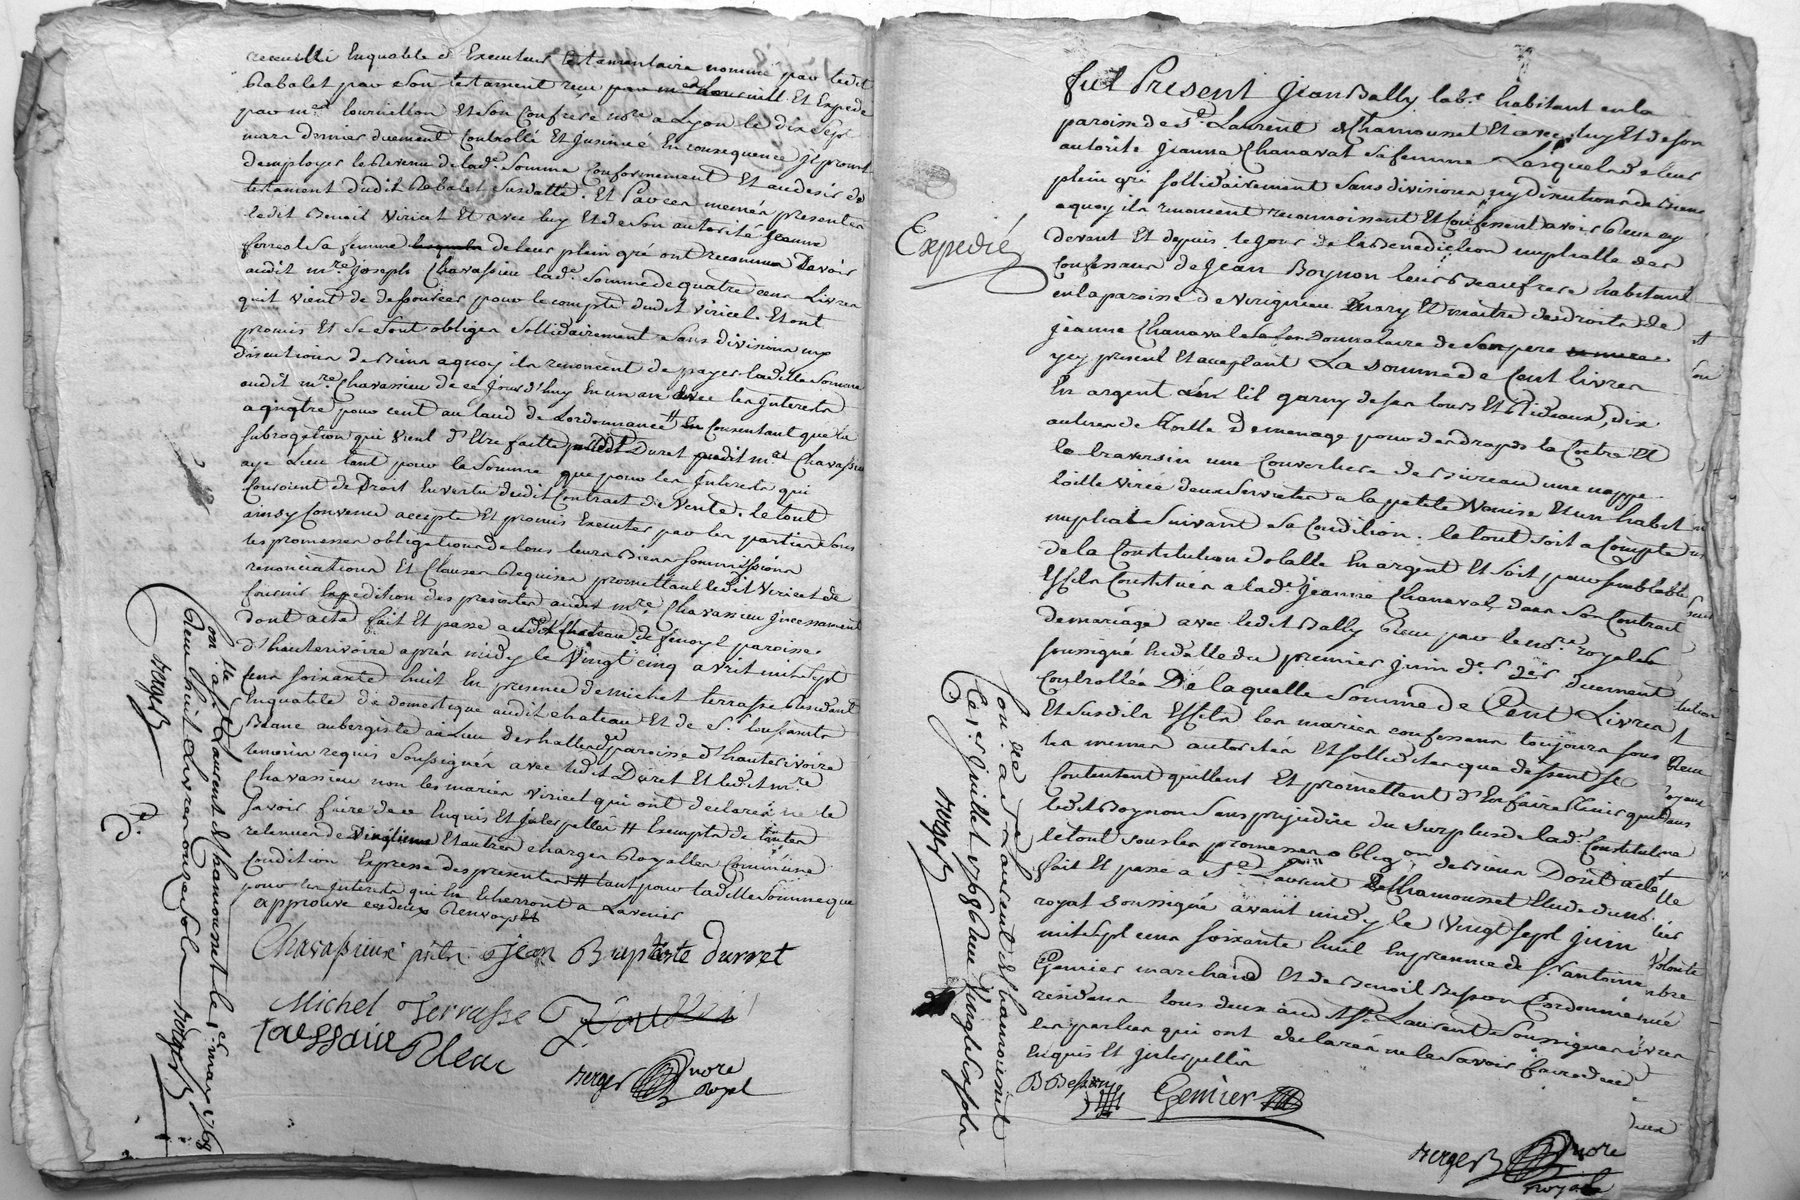 recueilli Enqualité d'Executeur testamentaire nommé par ledit
Rabalet par son testament reçu Et Expedié
par me Tournillon Et son Confrere nore a Lyon le dix Sept
mars dernier duement Controllé Et Insinué En consequence Il promet
demployer le Revenu de lade. Somme Conformement Et au desir du
testament dudit Rabalet Susdatté. Et Par ces memes presentes
ledit Benoit Viricel Et avec luy Et de son autorité Jeanne
sa femme de leur plein gré ont reconnu Devoir
audit mre Joseph Chavassieu lade. Somme de quatre cens Livres
quil vient de debourcer pour le compte dudit Viricel. Et ont
promis Et se sont obliges Sollidairement Sans division ny
discution de Biens a quoy ils renoncent de payer laditte Somme
audit mre. Chavassieu de ce jourd'huy En un an avec les Interests
a quatre pour cent au taux de Lordonnance # Consentant que la
subrogation qui vient d'Etre faitte Duret audit mre Chavassieu
aye Lieu tant pour la Somme que pour les Interests qui
Couroient de Droit En vertu dudit Contract de Vente. le tout
ainsy Convenu accepté Et promis Executer par les parties Sous
les promesses obligations de tous leurs Biens Sommissions
renonciations Et Clauses Requises promettant ledit Viricel de
fournir Expedition des presentes audit mre. Chavassieu Incessament
dont acte fait Et passé audit Chateau de finoyl paroisse
d'hauterivoire après midy le Vingt cinq avril mil Sept
cens soixante huit En presence de michel terrasse Residant
Enqualité de domestique audit chateau Et de Sr. toussaint
Blanc aubergiste au Lieu des halles paroisse d'hauterivoire
temoins requis Soussignés avec ledit Duret Et ledit mre
Chavassieu non les mariés Viricel qui ont declarés ne le
savoir faire de ce Enquis Et Interpellés # Exempte de toutes
retenues de Vingtieme Et autres charges Royalles Comme une
Condition Expresse des presentes # tant pour laditte Somme que
pour les Interests qui En Echerront a Lavenir
approuvé les deux Renvoys
Chavassieux prtre Jean Baptiste durret
Michel Terrasse
Toussain Blanc
Berger nore
Royal
Conlle a St Laurent de Chamousset le 1er. may 1768
Reçu huit Livres onze Sols
Berger
Expedié
fut Present Jean Bally labr. habitant en la
paroisse de St. Laurent de Chamousset Et avec luy Et de son
autorité Jeanne Chanavat sa femme Lesquels de leur
plein gré sollidairement sans division ny discution de Biens
a quoy ils renoncent reconnoissent Et Confessent avoir Reçu cy
devant Et depuis le jour de la Benediction nuptialle des
Confesseurs de Jean Boynon leur Beaufrere habitant
en la paroisse de Virigneu Mary Et maitre des droits de
Jeanne Chanavat sa fe. donnataire de Son pere
ycy present Et acceptant La somme de Cent livres
En argent Un lit garny de ses tours Et Rideaux, dix
aulnes de toille de menage pour des draps la Coetre Et
le traversin une Couverture de Bureau une nappe
toille Virée deux Serviettes a la petite Venise Et un habit
nuptial Suivant sa Condition. le tout soit a Compte
de la Constitution dotalle En argent Et soit pour semblables
Effets Constitués a lade. Jeanne Chanavat, dans son Contract
de mariage avec ledit Bally Reçu par le nore. royal
soussigné En datte du premier juin der duement
Controllés De laquelle Somme de Cent Livres
Et susdits Effets les mariés confessans toujours sous
les memes autorités Et sollidites que dessent se
Contentent quittent Et promettent d'En faire tenir quitte
ledit Boynon Sans prejudice du surplus de lade. Constitution
le tout sous les promesses obligons de Biens Dont acte
fait Et passé a St Laurent de Chamousset Etude du no.
royal soussigné avant midy le Vingt sept juin
mil Sept cens soixante huit En presence de Sr. antoine
Genier marchand Et de Benoit Besson Cordonnier
residans tous deux audit St. Laurent Soussignés non
les parties qui ont declarés ne le savoir faire de ce
Enquis Et Interpellés
B Besson Genier
Berger nore
royal
Conllé a St Laurent de Chamousset
le 1er juillet 1768 Reçu Vingt six sols
Berger